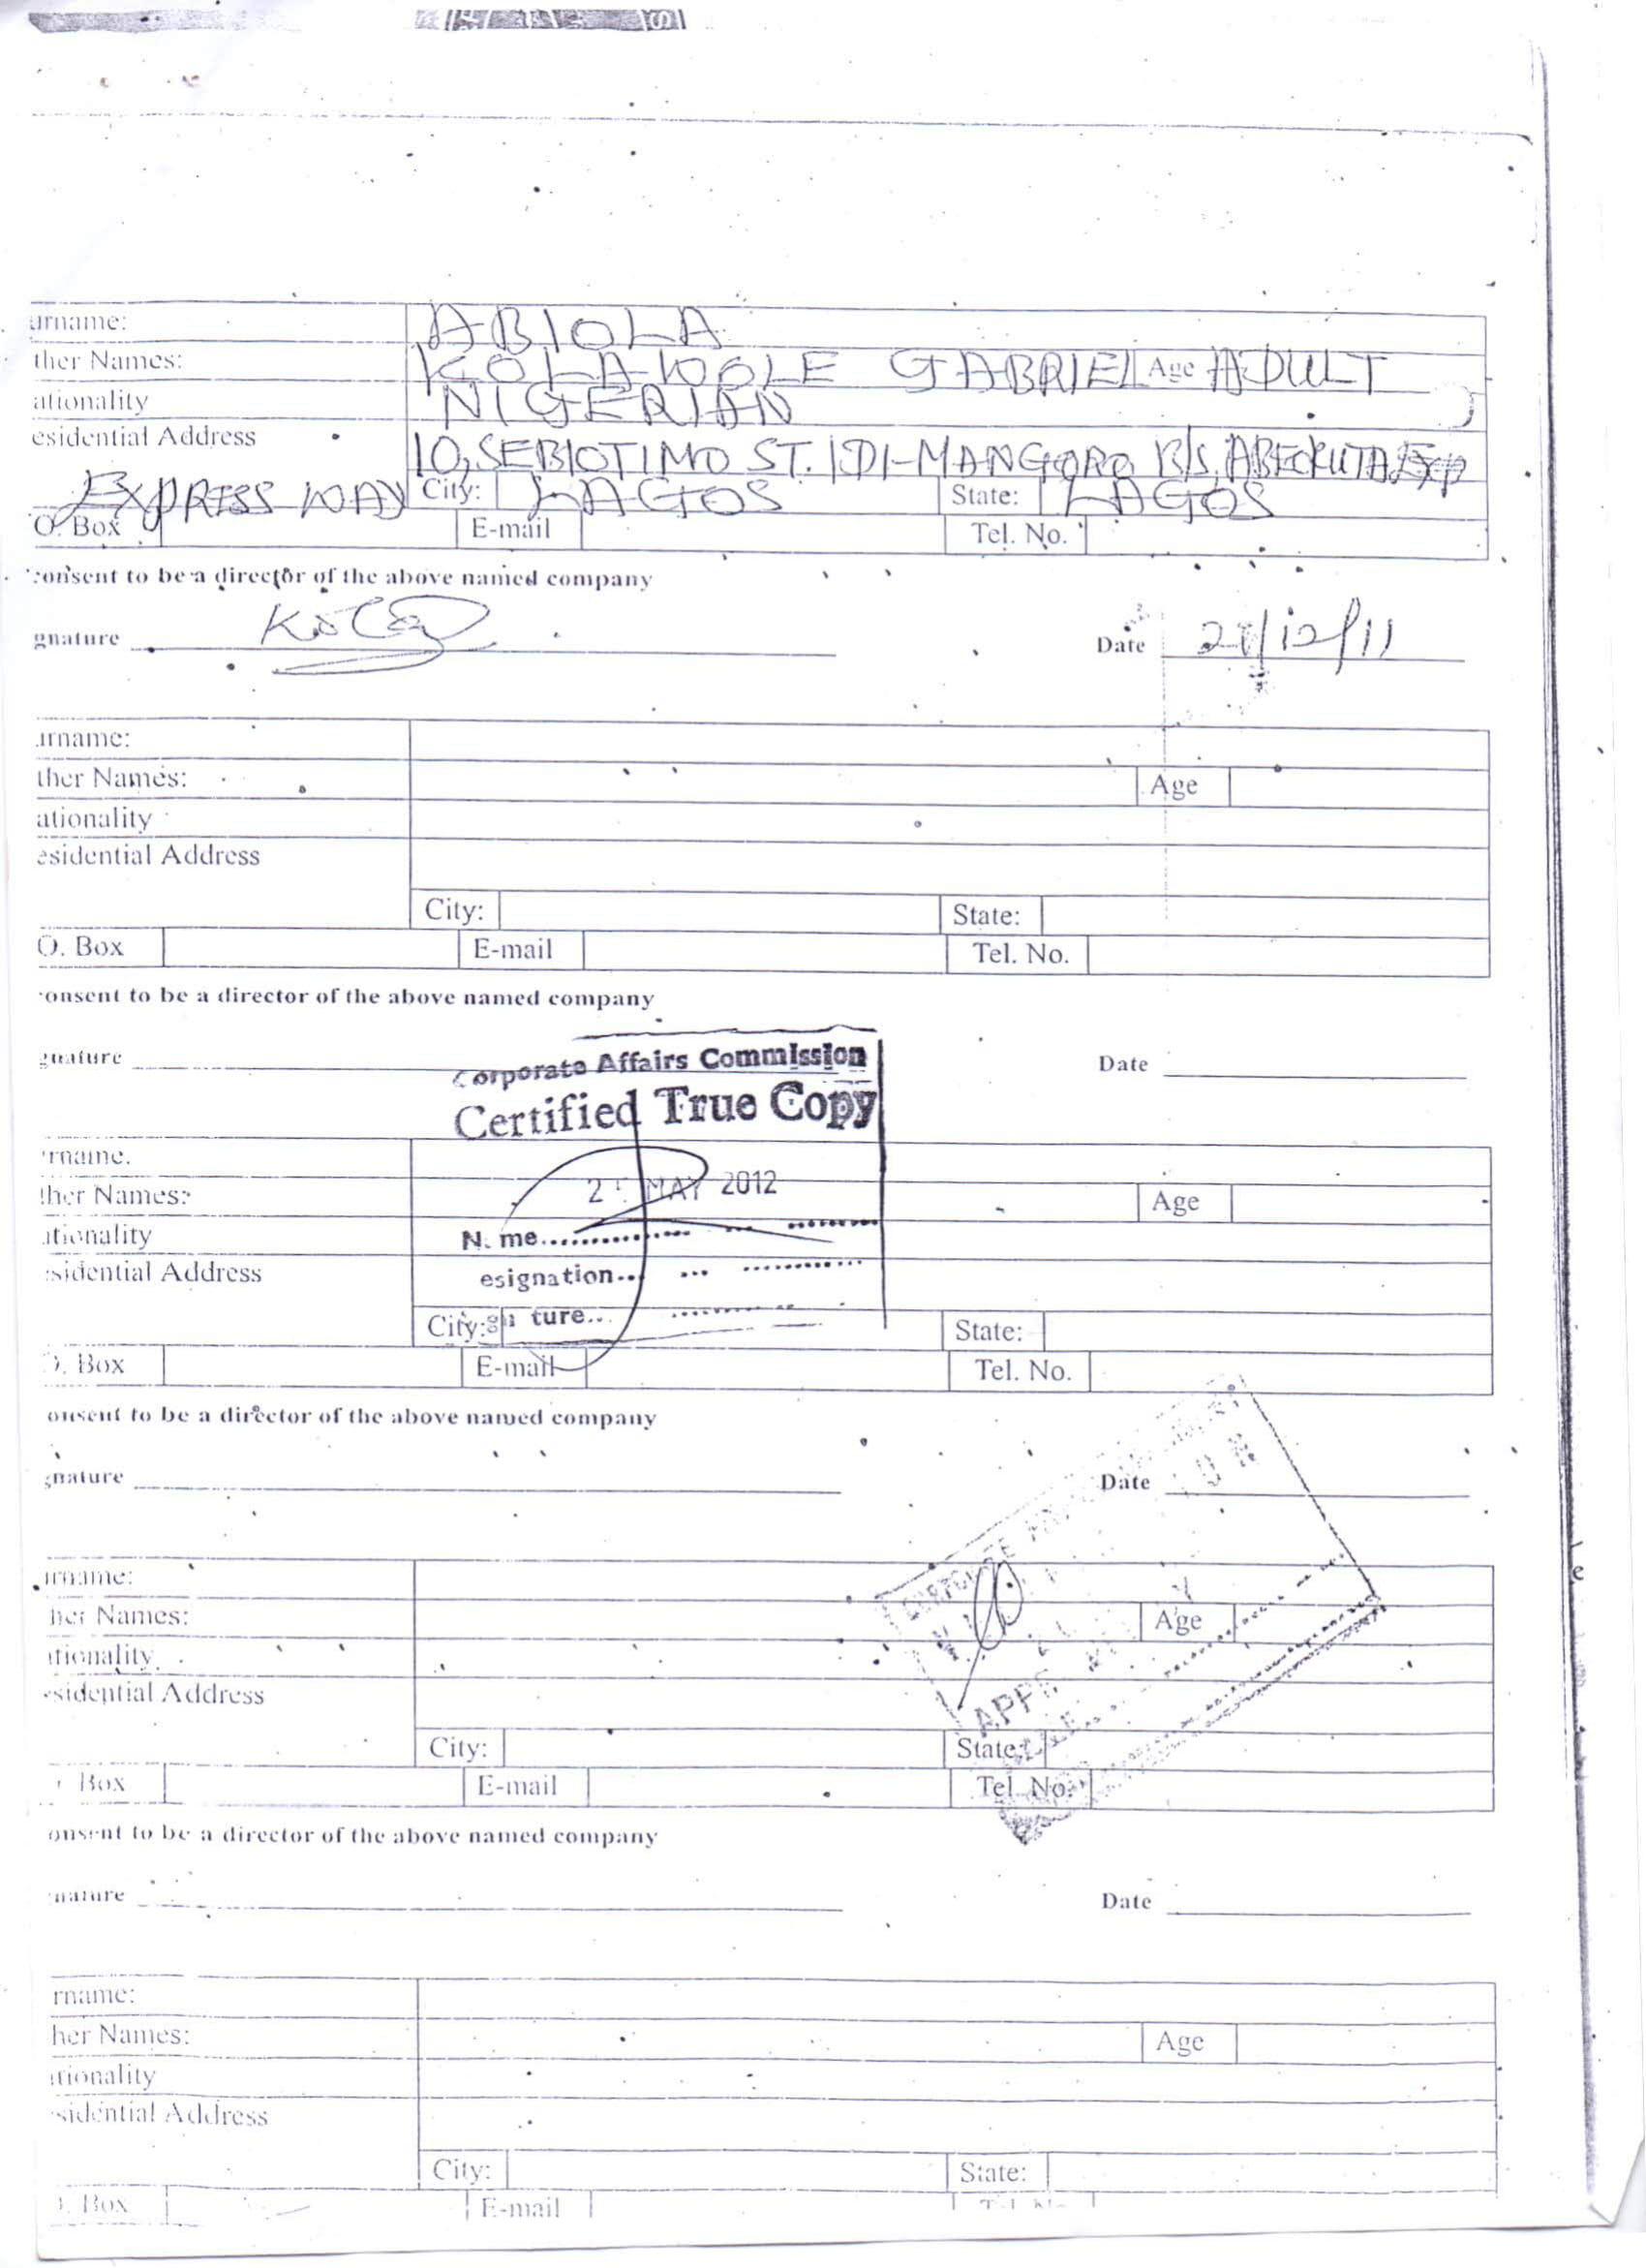 urname: ABIOLA
ther Names: KOLAWOLE GABRIEL Age ADULT
ationality NIGERIAN
esidential Address 10, SEBIOTIMO ST. IDI-MANGORO B/S, ABEOKUTA Exp
EXPRESS WAY City: LAGOS State: LAGOS
O. Box E-mail Tel. No.
consent to be a director of the above named company
gnature Date
urname:
ther Names: Age
ationality
esidential Address
City: State:
O. Box E-mail Tel. No.
onsent to be a director of the above named company
gnature Date
Corporate Affairs Commission
Certified True Copy
rname.
ther Names: MAY 2012 Age
ationality N. me
sidential Address esignation
City: ture State:
O. Box E-mail Tel. No.
onsent to be a director of the above named company
gnature Date
urname:
her Names: Age
tionality
sidential Address
City: State:
Box E-mail Tel. No.
onsent to be a director of the above named company
nature Date
rname:
her Names: Age
tionality
sidential Address
City: State:
Box E-mail